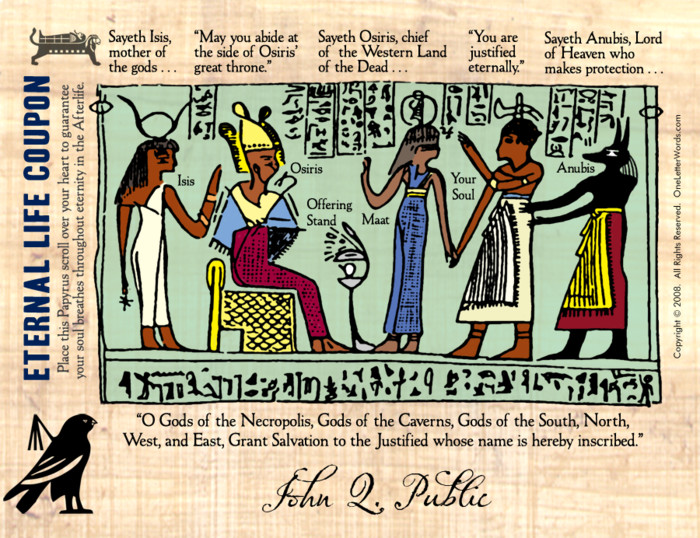 Sayeth Isis,
mother of
the gods . . .
“May you abide at
the side of Osiris’
great throne.”
Sayeth Osiris, chief
of the Western Land
of the Dead . . .
“You are
justified
eternally.”
Sayeth Anubis, Lord
of Heaven who
makes protection . . .
ETERNAL LIFE COUPON
Place this Papyrus scroll over your heart to guarantee
your soul breathes throughout eternity in the Afterlife.
Isis
Osiris
Offering
Stand
Maat
Your
Soul
Anubis
Copyright © 2008. All Rights Reserved. OneLetterWords.com
“O Gods of the Necropolis, Gods of the Caverns, Gods of the South, North,
West, and East, Grant Salvation to the Justified whose name is hereby inscribed.”
John Q. Public